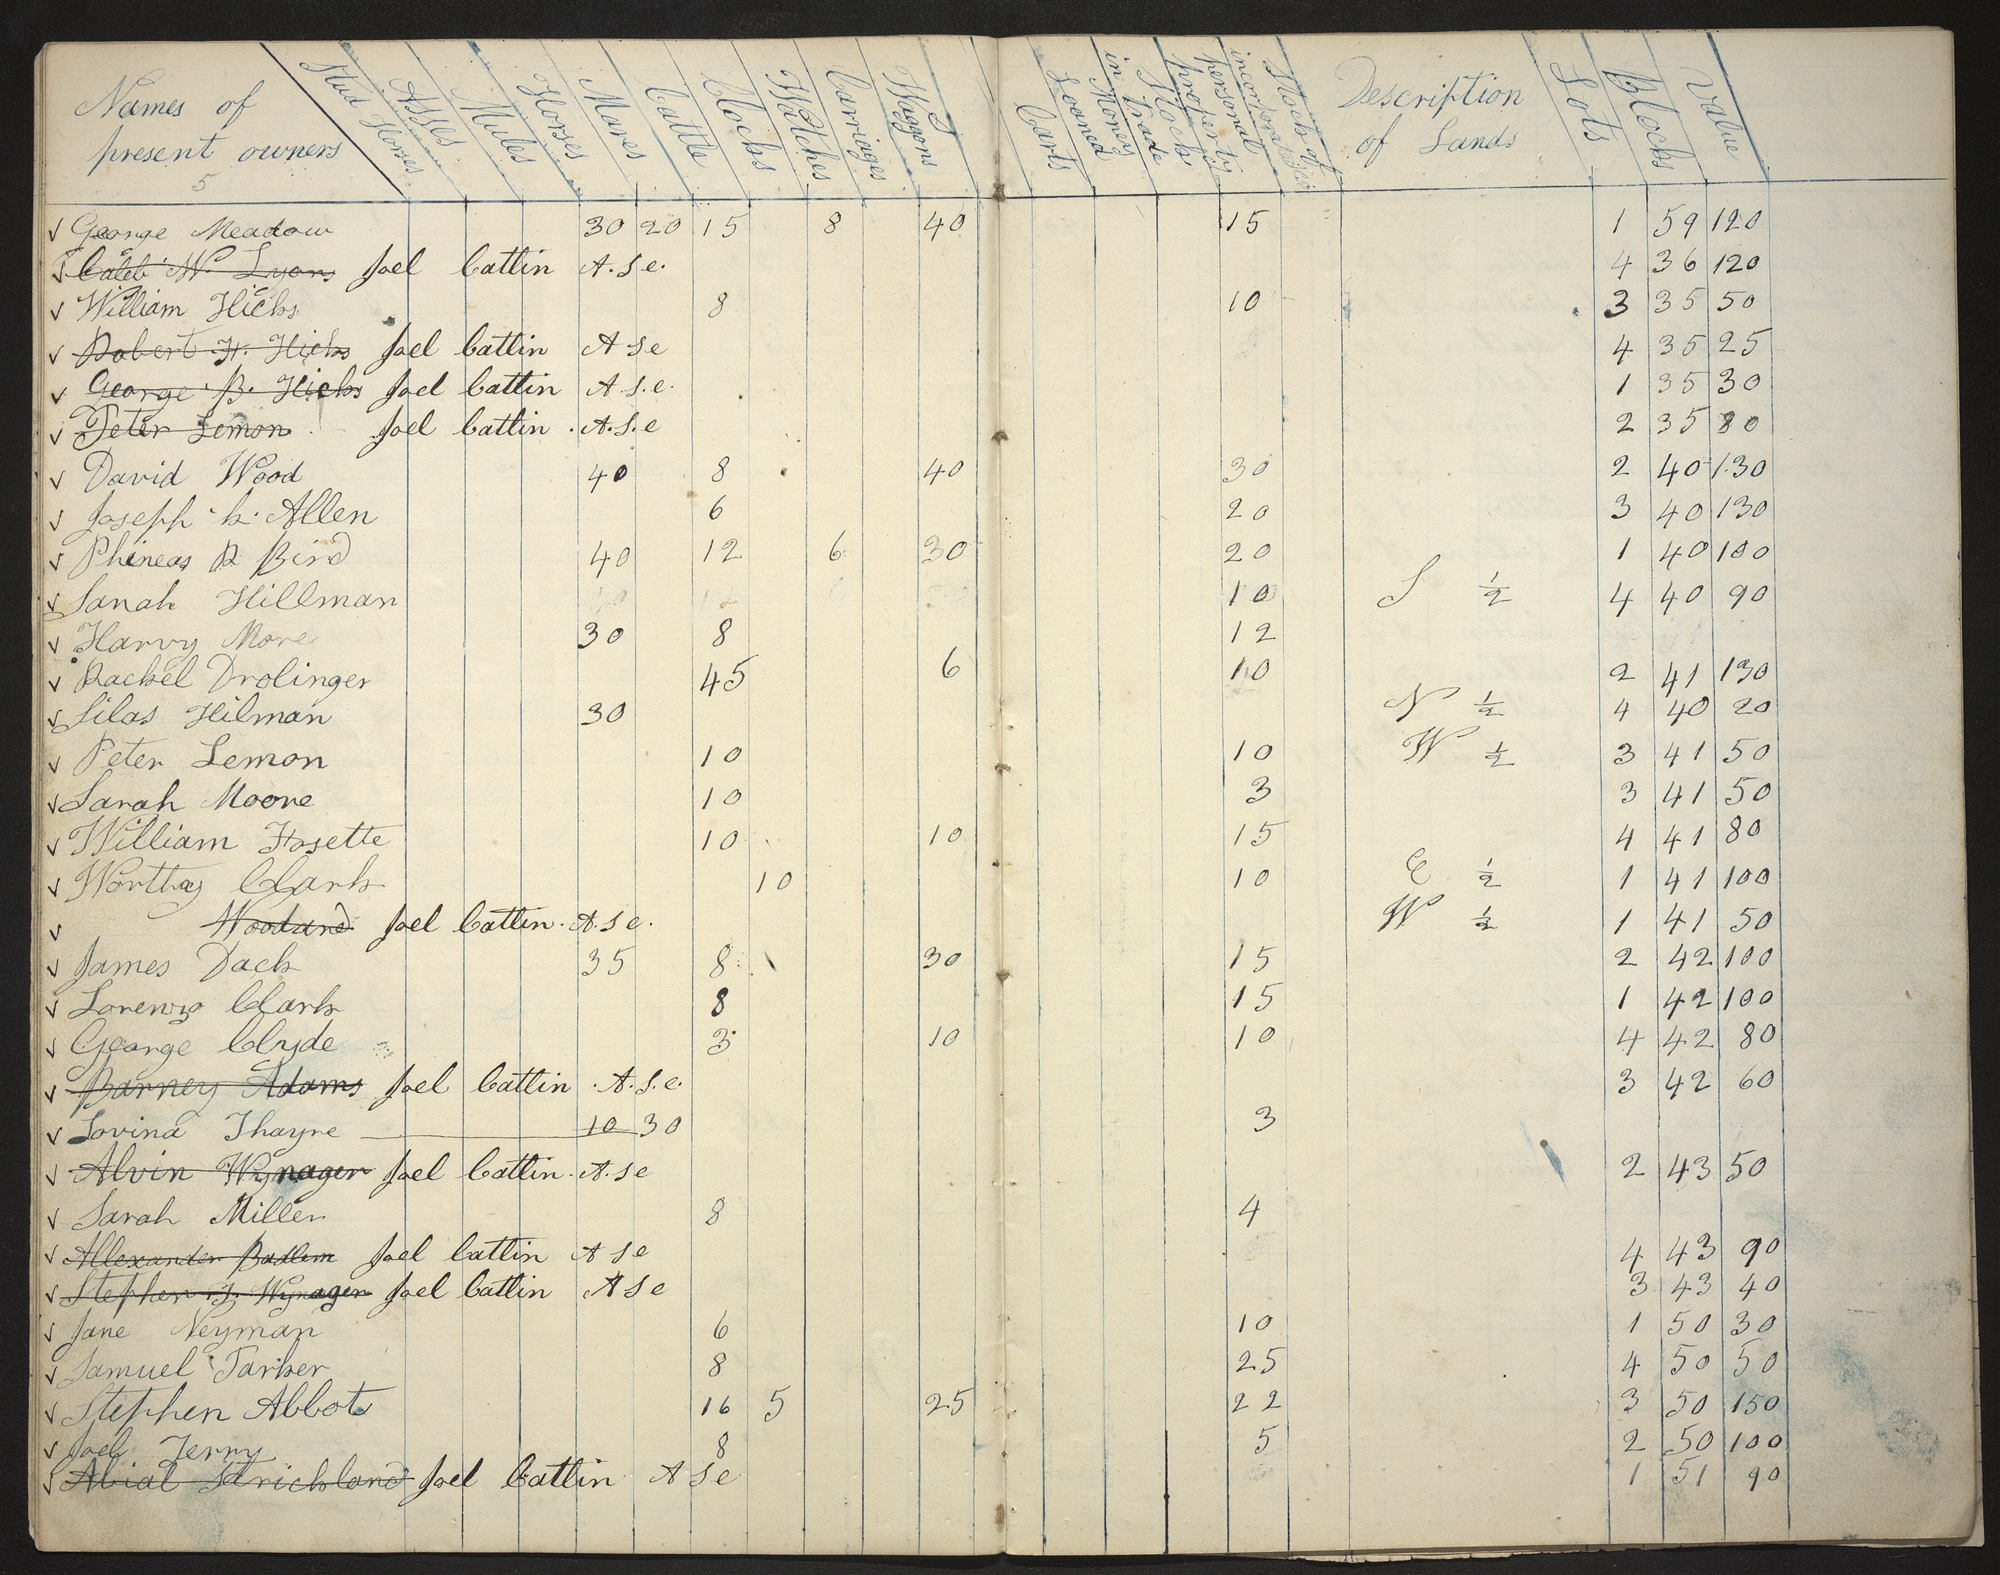 Names of present owners
5
Stud Horses
Asses
Mules
Horses
Mares
Cattle
Clocks
Watches
Carriages
Waggons
Carts
Loaned Money
in trade Stock
property personal
incorporat Stock of
Description of Lands
Lots
Blocks
Value
George Meadow 30 20 15 8 40 15 1 59 120
Caleb W. Lyons Joel Catlin A.S.e. 4 36 120
William Hicks 8 10 3 35 50
Robert H. Hicks Joel Catlin A S e 4 35 25
George B. Hicks Joel Catlin A.S.e. 1 35 30
Peter Lemon Joel Catlin A.S.e 2 35 80
David Wood 40 8 40 30 2 40 130
Joseph k. Allen 6 20 3 40 130
Phineas R Bird 40 12 6 30 20 1 40 100
Sarah Hillman 10 S ½ 4 40 90
Harvy More 30 8 12
Rachel Drolinger 45 6 10 2 41 130
Silas Hilman 30 N ½ 4 40 20
Peter Lemon 10 10 W ½ 3 41 50
Sarah Moore 10 3 3 41 50
William Fosette 10 10 15 4 41 80
Worthy Clark 10 10 E ½ 1 41 100
Woodard Joel Catlin A.S.e. W ½ 1 41 50
James Dack 35 8 30 15 2 42 100
Lorenzo Clark 8 15 1 42 100
George Clyde 3 10 10 4 42 80
Barney Adams Joel Catlin A.S.e. 3 42 60
Lovina Thayre 10 30 3
Alvin Wynager Joel Catlin A.S e 2 43 50
Sarah Miller 8 4
Allexander Badlem Joel Catlin A S e 4 43 90
Stephen J. Wynager Joel Catlin A S e 3 43 40
Jane Neyman 6 10 1 50 30
Samuel Parker 8 25 4 50 50
Stephen Abbot 16 5 25 22 3 50 150
Joel Terry 8 5 2 50 100
Abial Strickland Joel Catlin A S e 1 51 90